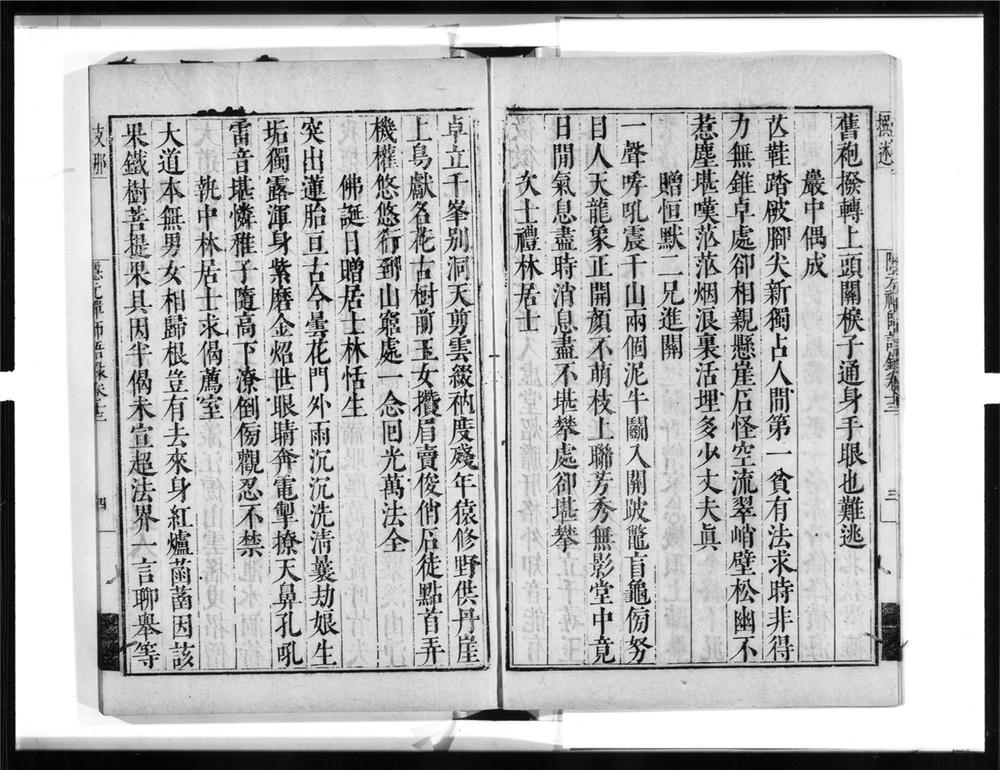 舊砲撥轉上頭關棙子通身手眼也難逃
巖中偶成
苙鞋踏破腳尖新獨占人間第一貧有法求時非得
力無錐卓處卻相親懸崖石怪空流翠峭壁松幽不
惹塵堪嘆茫茫烟浪裏活埋多少丈夫眞
贈恒默二兄進關
一聲哮吼震千山兩個泥牛鬭入關跛鼈盲龜傍努
目人天龍象正開顏不萌枝上聯芳秀無影堂中竟
日閒氣息盡時消息盡不堪攀處卻堪攀
次士禮林居士
卓立千峯別洞天剪雲綴衲度殘年猿修野供丹崖
上鳥獻名花古樹前玉女攢眉賣俊俏石徒點首弄
機權悠悠行到山窮處一念回光萬法全
佛誕日贈居士林恬生
突出蓮胎亘古今曇花門外雨沉沉洗清曩劫娘生
垢獨露渾身紫磨金炤世眼睛奔電掣撩天鼻孔吼
雷音堪憐稚子隨高下潦倒傍觀忍不禁
執中林居士求偈薦室
大道本無男女相歸根豈有去來身紅爐菡萏因該
果鐵樹菩提果具因半偈未宣超法界一言聊舉等
支那
四
三